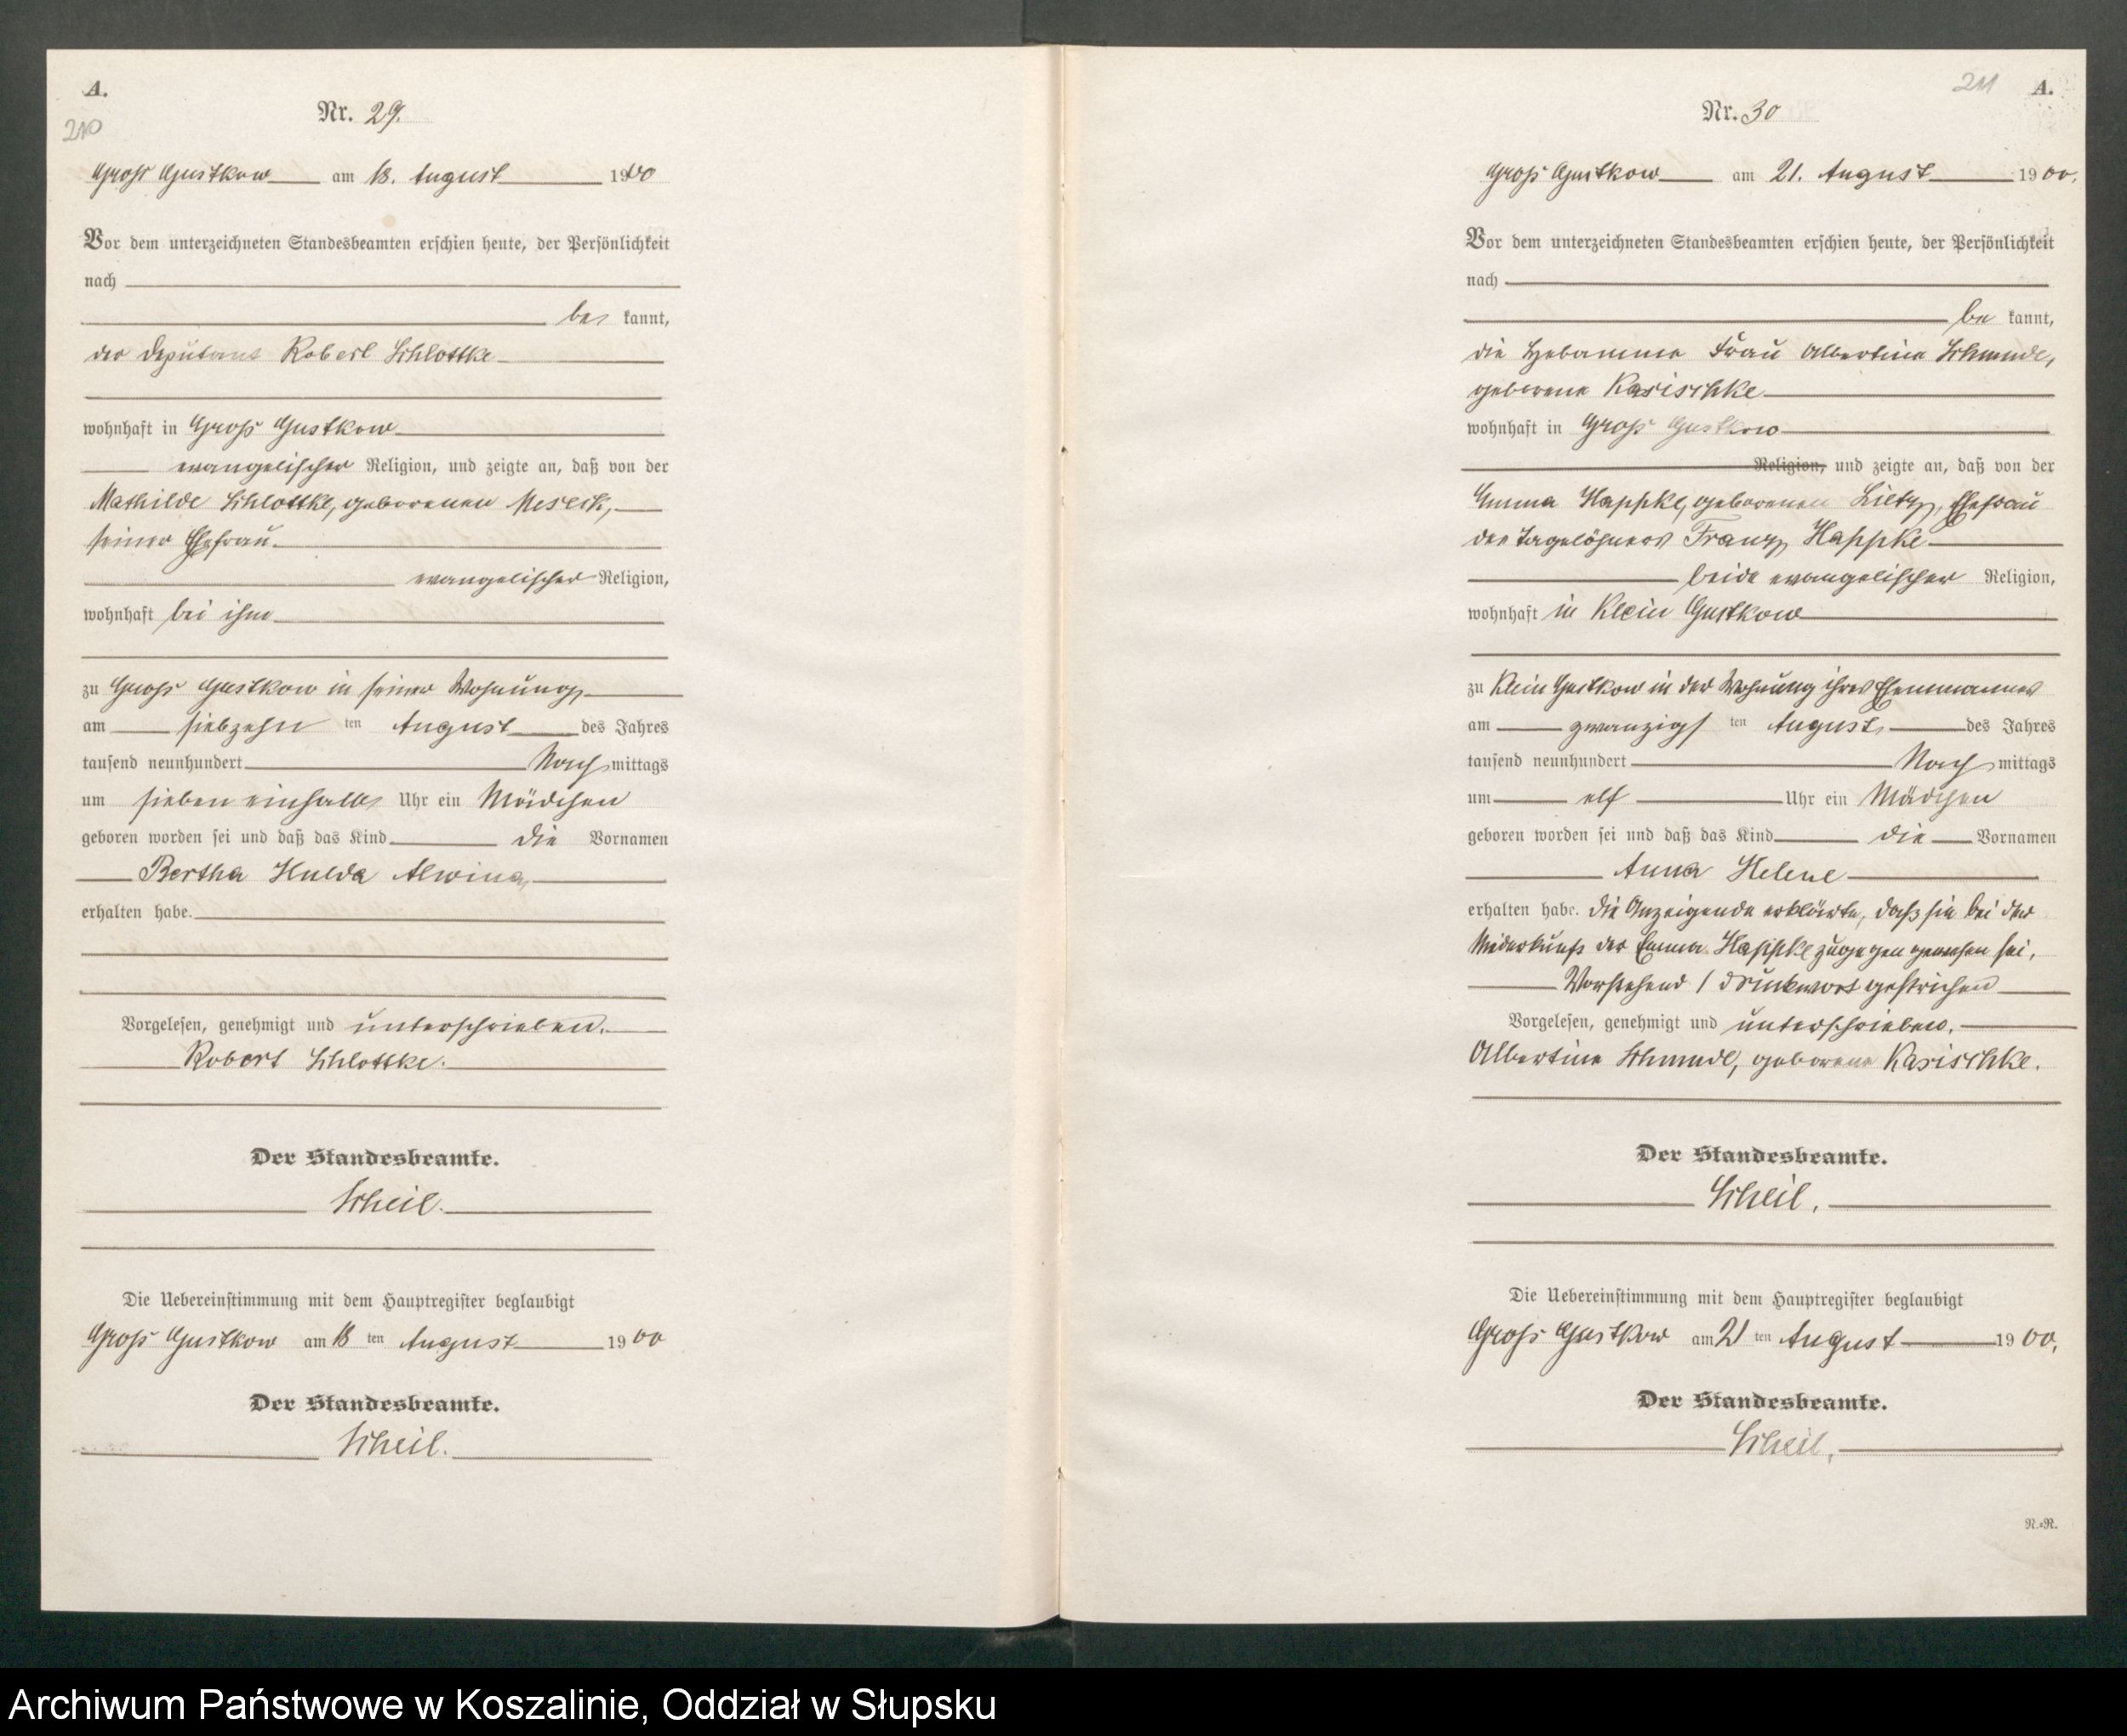 A.
210
Nr. 29.
Groß Gustkow am 18. August 1900
Vor dem unterzeichneten Standesbeamten erschien heute, der Persönlichkeit
nach
be kannt,
der Deputant Robert Schlottke
wohnhaft in Groß Gustkow
evangelischer Religion, und zeigte an, daß von der
Mathilde Schlottke, geborenen
seiner Ehefrau
evangelischer Religion,
wohnhaft bei ihm
zu Groß Gustkow in seiner Wohnung,
am siebzehn ten August des Jahres
tausend neunhundert Nach mittags
um sieben einhalb Uhr ein Mädchen
geboren worden sei und daß das Kind die Vornamen
Bertha Hulda Alwina,
erhalten habe.
Vorgelesen, genehmigt und unterschrieben.
Robert Schlottke.
Der Standesbeamte.
Scheil.
Die Uebereinstimmung mit dem Hauptregister beglaubigt
Groß Gustkow am 18 ten August 1900
Der Standesbeamte.
Scheil.
211 A.
Nr. 30
Groß Gustkow am 21. August 1900.
Vor dem unterzeichneten Standesbeamten erschien heute, der Persönlichkeit
nach
be kannt,
die Hebamme Frau Albertine Schmude,
geborene Karischke
wohnhaft in Groß Gustkow
Religion, und zeigte an, daß von der
Emma Happke, geborenen Lietz, Ehefrau
des Tagelöhners Franz Happke
beide evangelischer Religion,
wohnhaft in Klein Gustkow
zu Klein Gustkow in der Wohnung ihres Ehemannes
am zwanzigs ten August, des Jahres
tausend neunhundert Nach mittags
um elf Uhr ein Mädchen
geboren worden sei und daß das Kind die Vornamen
Anna Helene
erhalten habe. Die Anzeigende erklärte, daß sie bei der
Niederkunft der Emma Happke zugegen gewesen sei.
Vorstehend 1 Druckwort gestrichen
Vorgelesen, genehmigt und unterschrieben.
Albertine Schmude, geborene Karischke.
Der Standesbeamte.
Scheil.
Die Uebereinstimmung mit dem Hauptregister beglaubigt
Groß Gustkow am 21 ten August 1900.
Der Standesbeamte.
Scheil.
N.=R.
Archiwum Państwowe w Koszalinie, Oddział w Słupsku